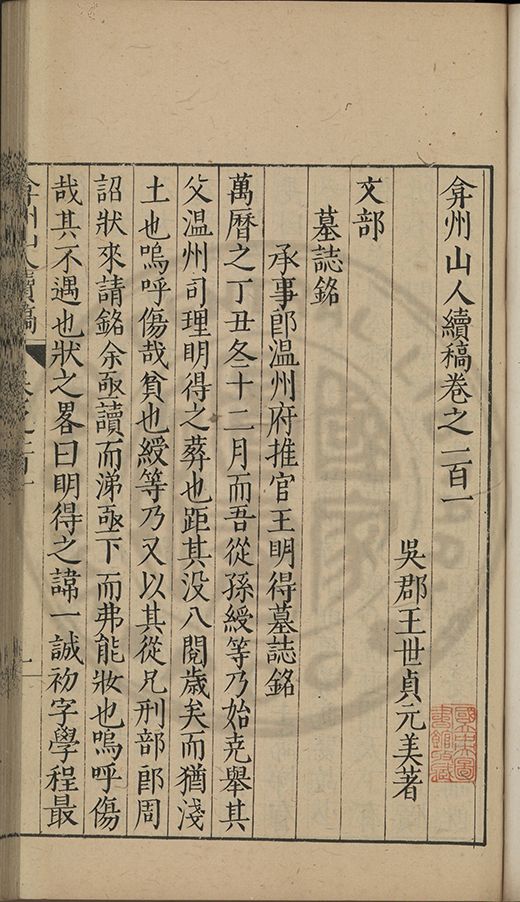 弇州山人續稿卷之一百一
吳郡王世貞元美著
文部
墓誌銘
承事郎温州府推官王明得墓誌銘
萬曆之丁丑冬十二月而吾從孫綬等乃始克舉其
父温州司理明得之葬也距其没八閱歲矣而猶淺
土也嗚呼傷哉貧也綬等乃又以其從兄刑部郎周
詔狀來請銘余亟讀而涕亟下而弗能妝也嗚呼傷
哉其不遇也狀之畧曰明得之諱一誠初字學程最
弇州山人續稿